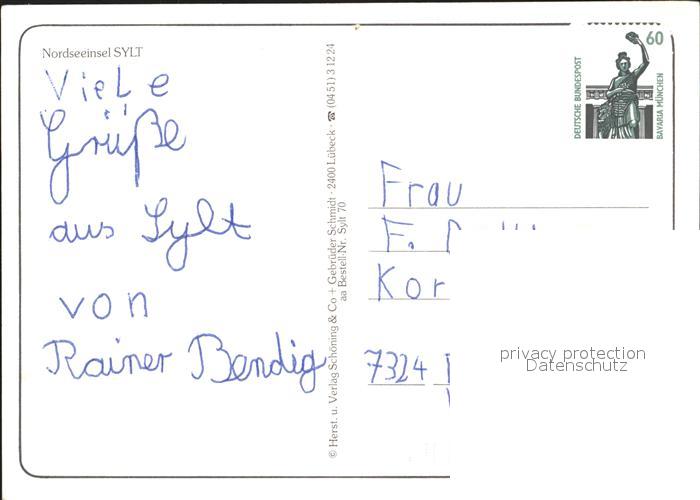 Nordseeinsel SYLT
Viele
Grüße
aus Sylt
von
Rainer Bendig
© Herst. u. Verlag Schöning & Co + Gebrüder Schmidt · 2400 Lübeck · ☎ (04 51) 3 12 24
aa Bestell-Nr. Sylt 70
60
DEUTSCHE BUNDESPOST
BAVARIA MÜNCHEN
Frau
F.
Kor
7324
privacy protection
Datenschutz